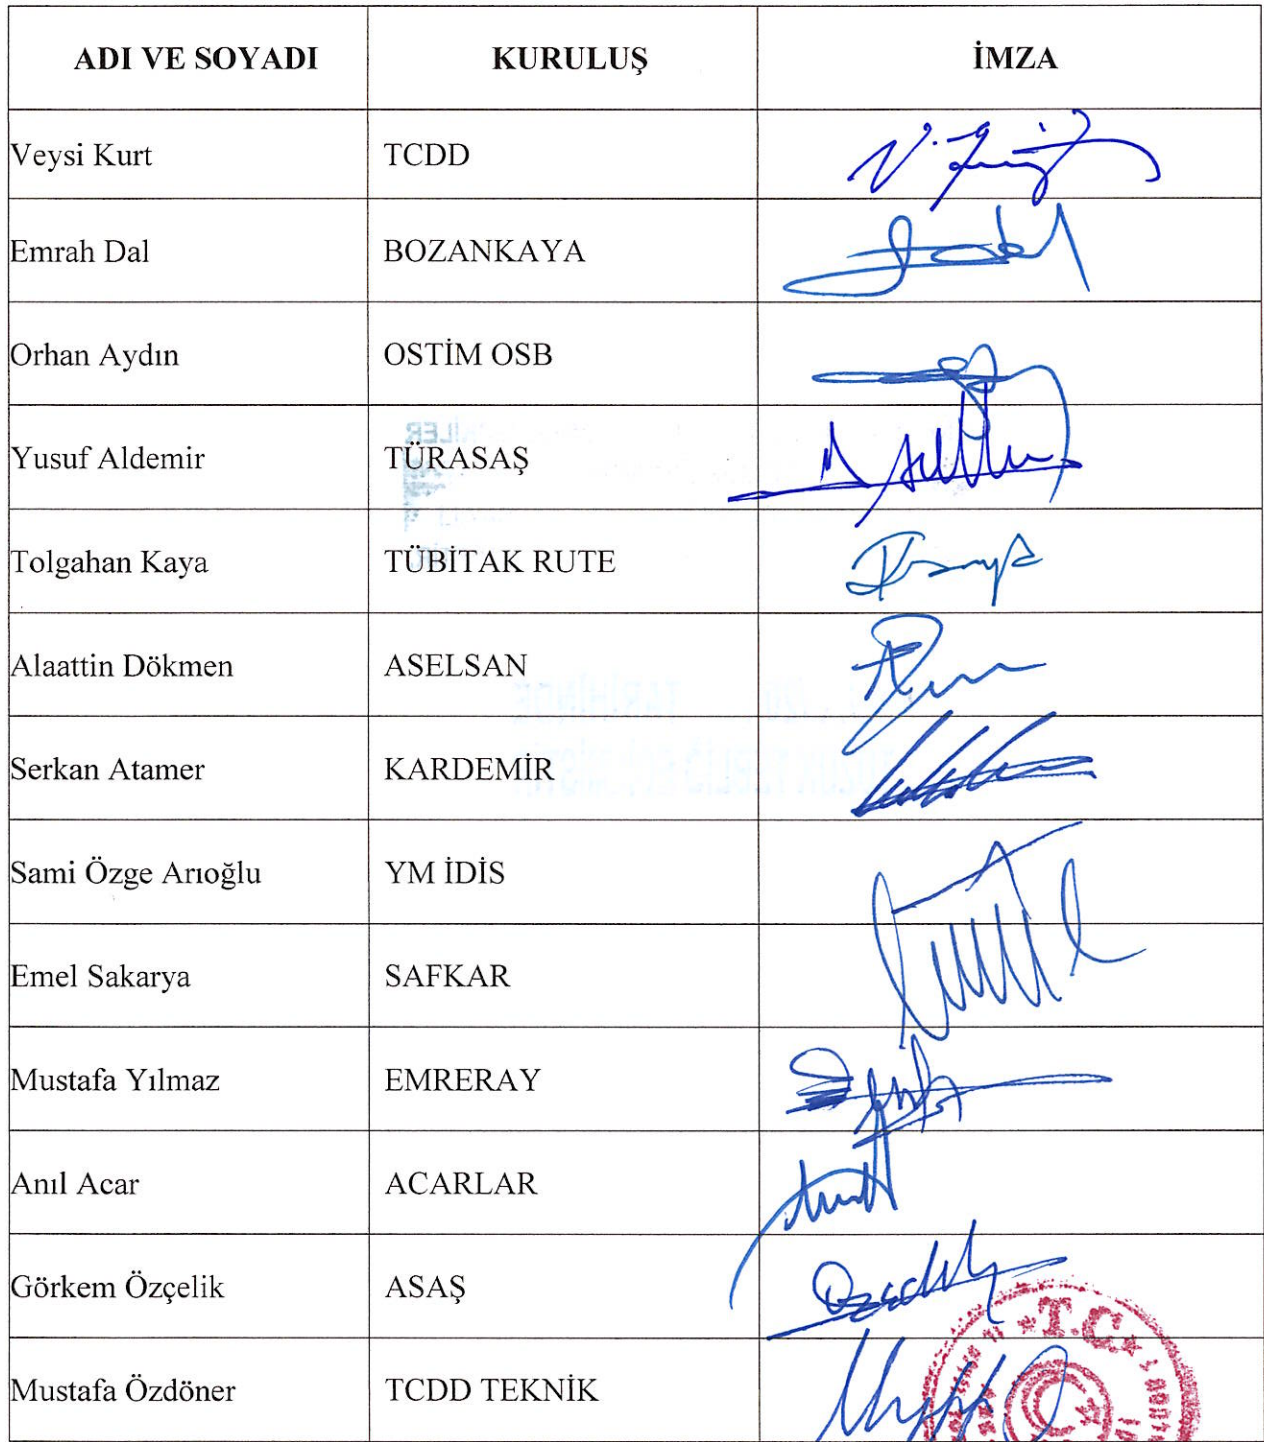 ADI VE SOYADI KURULUŞ İMZA
Veysi Kurt TCDD
Emrah Dal BOZANKAYA
Orhan Aydın OSTİM OSB
Yusuf Aldemir TÜRASAŞ
Tolgahan Kaya TÜBİTAK RUTE
Alaattin Dökmen ASELSAN
Serkan Atamer KARDEMİR
Sami Özge Arıoğlu YM İDİS
Emel Sakarya SAFKAR
Mustafa Yılmaz EMRERAY
Anıl Acar ACARLAR
Görkem Özçelik ASAŞ
T.C.
Mustafa Özdöner TCDD TEKNİK